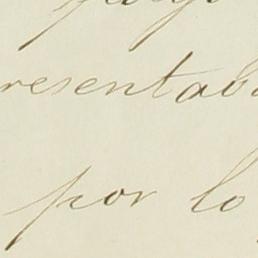 resentaba
por lo